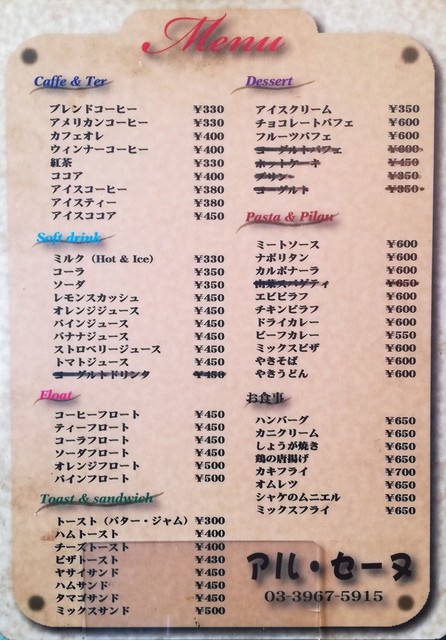 Menu
Caffe & Ter
ブレンドコーヒー ¥330
アメリカンコーヒー ¥330
カフェオレ ¥400
ウィンナーコーヒー ¥400
紅茶 ¥330
ココア ¥400
アイスコーヒー ¥380
アイスティー ¥380
アイスココア ¥450
Soft drink
ミルク(Hot & Ice) ¥330
コーラ ¥350
ソーダ ¥350
レモンスカッシュ ¥450
オレンジジュース ¥450
パインジュース ¥450
バナナジュース ¥450
ストロベリージュース ¥450
トマトジュース ¥450
ヨーグルトドリンク ¥450
Float
コーヒーフロート ¥450
ティーフロート ¥450
コーラフロート ¥450
ソーダフロート ¥450
オレンジフロート ¥500
パインフロート ¥500
Toast & sandwich
トースト(バター・ジャム) ¥300
ハムトースト ¥400
チーズトースト ¥400
ピザトースト ¥430
ヤサイサンド ¥450
ハムサンド ¥450
タマゴサンド ¥450
ミックスサンド ¥500
Dessert
アイスクリーム ¥350
チョコレートパフェ ¥600
フルーツパフェ ¥600
ヨーグルトパフェ ¥600
ホットケーキ ¥450
プリン ¥350
ヨーグルト ¥350
Pasta & Pilau
ミートソース ¥600
ナポリタン ¥600
カルボナーラ ¥600
山菜スパゲティ ¥650
エビピラフ ¥600
チキンピラフ ¥600
ドライカレー ¥600
ビーフカレー ¥550
ミックスピザ ¥600
やきそば ¥600
やきうどん ¥600
お食事
ハンバーグ ¥650
カニクリーム ¥650
しょうが焼き ¥650
鶏の唐揚げ ¥650
カキフライ ¥700
オムレツ ¥650
シャケのムニエル ¥650
ミックスフライ ¥650
アル・セーヌ
03-3967-5915